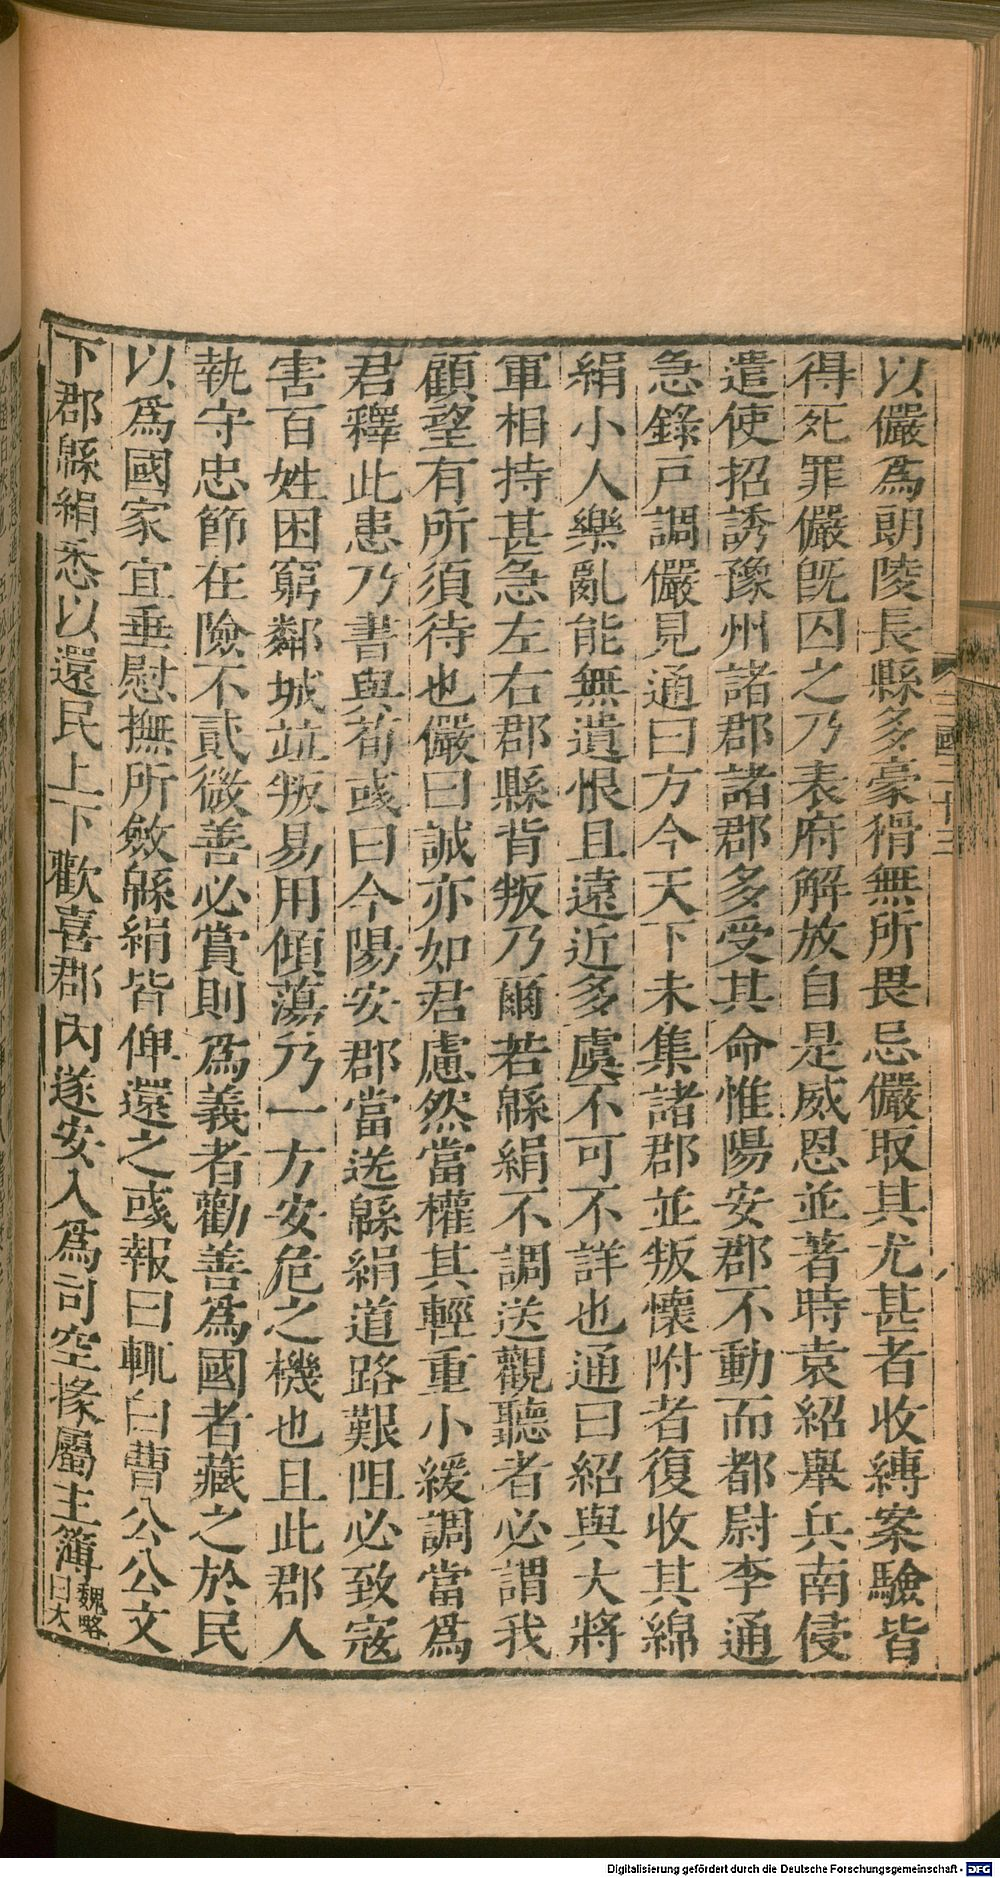 以儼為朗陵長縣多豪猾無所畏忌儼取其尤甚者收縛案驗皆
得死罪儼旣囚之乃表府解放自是威恩並著時袁紹舉兵南侵
遣使招誘豫州諸郡諸郡多受其命惟陽安郡不動而都尉李通
急錄戸調儼見通曰方今天下未集諸郡並叛懷附者復收其綿
絹小人樂亂能無遺恨且遠近多虞不可不詳也通曰紹與大將
軍相持甚急左右郡縣背叛乃爾若緜絹不調送觀聽者必謂我
顧望有所須待也儼曰誠亦如君慮然當權其輕重小緩調當爲
君釋此患乃書與荀彧曰今陽安郡當送緜絹道路艱阻必致寇
害百姓困窮鄰城竝叛易用傾蕩乃一方安危之機也且此郡人
執守忠節在險不貳微善必賞則爲義者勸善爲國者藏之於民
以爲國家宜垂慰撫所斂緜絹皆俾還之彧報曰輒白曹公公文
下郡緜絹悉以還民上下歡喜郡內遂安入爲司空掾屬主簿魏略
曰太
三國二十三
八
Digitalisierung gefördert durch die Deutsche Forschungsgemeinschaft - DFG